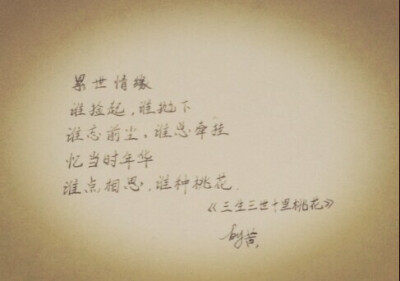 累世情缘
谁捡起,谁抛下
谁忘前尘、谁总牵挂
忆当时年华
谁点相思,谁种桃花.
《三生三世十里桃花》